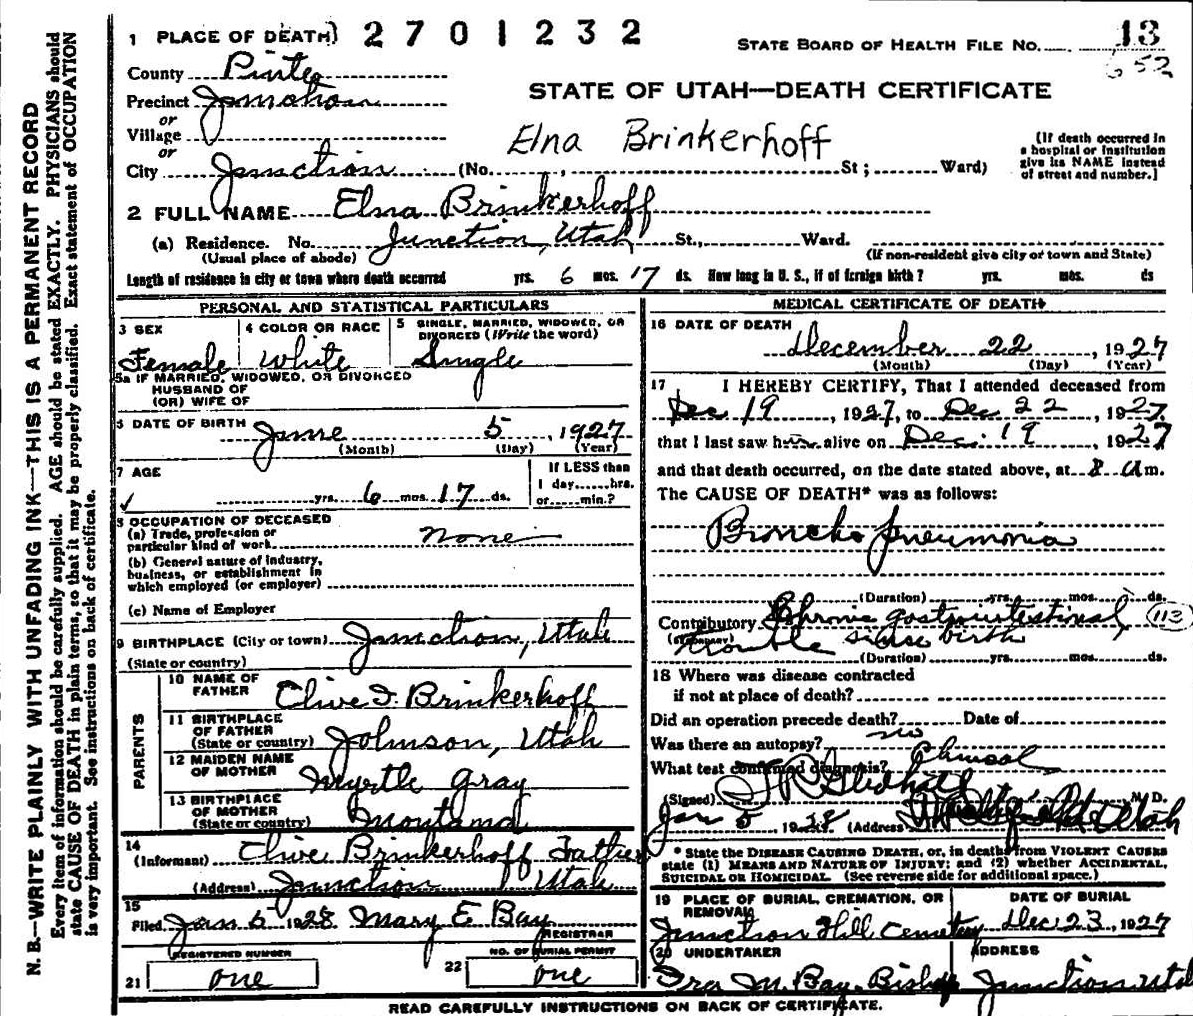 1 PLACE OF DEATH) 2701232
STATE BOARD OF HEALTH FILE No. 13
652
County Piute
STATE OF UTAH—DEATH CERTIFICATE
Precinct Junction
or
Village
or
Elna Brinkerhoff
City Junction (No. St; Ward)
(If death occurred in
a hospital or institution
give its NAME instead
of street and number.]
2 FULL NAME Elna Brinkerhoff
(a) Residence. No. Junction, Utah St., Ward.
(Usual place of abode) (If non-resident give city or town and State)
Length of residence in city or town where death occurred yrs. 6 mos. 17 ds. How long in U. S., if of foreign birth? yrs. mos. ds
PERSONAL AND STATISTICAL PARTICULARS
3 SEX Female
4 COLOR OR RACE White
5 SINGLE, MARRIED, WIDOWED, OR
DIVORCED (Write the word)
Single
5a IF MARRIED, WIDOWED, OR DIVORCED
HUSBAND OF
(OR) WIFE OF
6 DATE OF BIRTH June 5, 1927
(Month) (Day) (Year)
7 AGE
yrs. 6 mos. 17 ds.
If LESS than
1 day......hrs.
or......min.?
8 OCCUPATION OF DECEASED
(a) Trade, profession or
particular kind of work none
(b) General nature of industry,
business, or establishment in
which employed (or employer)
(c) Name of Employer
9 BIRTHPLACE (City or town) Junction, Utah
(State or country)
PARENTS
10 NAME OF
FATHER Clive F. Brinkerhoff
11 BIRTHPLACE
OF FATHER
(State or country) Johnson, Utah
12 MAIDEN NAME
OF MOTHER Myrtle Gray
13 BIRTHPLACE
OF MOTHER
(State or country) Montana
14
(Informant) Clive Brinkerhoff Father
(Address) Junction Utah
15
Filed Jan 5 1928 Mary E Bay
REGISTRAR
REGISTERED NUMBER
21 one
NO. OF BURIAL PERMIT
22 one
MEDICAL CERTIFICATE OF DEATH
16 DATE OF DEATH
December 22, 1927
(Month) (Day) (Year)
17 I HEREBY CERTIFY, That I attended deceased from
Dec 19, 1927, to Dec 22, 1927
that I last saw her alive on Dec. 19, 1927
and that death occurred, on the date stated above, at 8 am.
The CAUSE OF DEATH* was as follows:
Broncho pneumonia
(Duration) yrs. mos. ds.
Contributory Chronic gastrointestinal (113)
trouble since birth
(Duration) yrs. mos. ds.
18 Where was disease contracted
if not at place of death?
Did an operation precede death? Date of
Was there an autopsy? no
What test confirmed diagnosis? Clinical
(Signed) M. D.
Jan 5 1928 (Address) Utah
* State the DISEASE CAUSING DEATH, or, in deaths from VIOLENT CAUSES
state (1) MEANS AND NATURE OF INJURY; and (2) whether ACCIDENTAL,
SUICIDAL OR HOMICIDAL. (See reverse side for additional space.)
19 PLACE OF BURIAL, CREMATION, OR
REMOVAL
Junction Hill Cemetery
DATE OF BURIAL
Dec 23, 1927
20 UNDERTAKER
Ira M. Bay. Bishop
ADDRESS
Junction Utah
READ CAREFULLY INSTRUCTIONS ON BACK OF CERTIFICATE.
N. B.—WRITE PLAINLY WITH UNFADING INK—THIS IS A PERMANENT RECORD
Every item of information should be carefully supplied. AGE should be stated EXACTLY. PHYSICIANS should
state CAUSE OF DEATH in plain terms, so that it may be properly classified. Exact statement of OCCUPATION
is very important. See instructions on back of certificate.